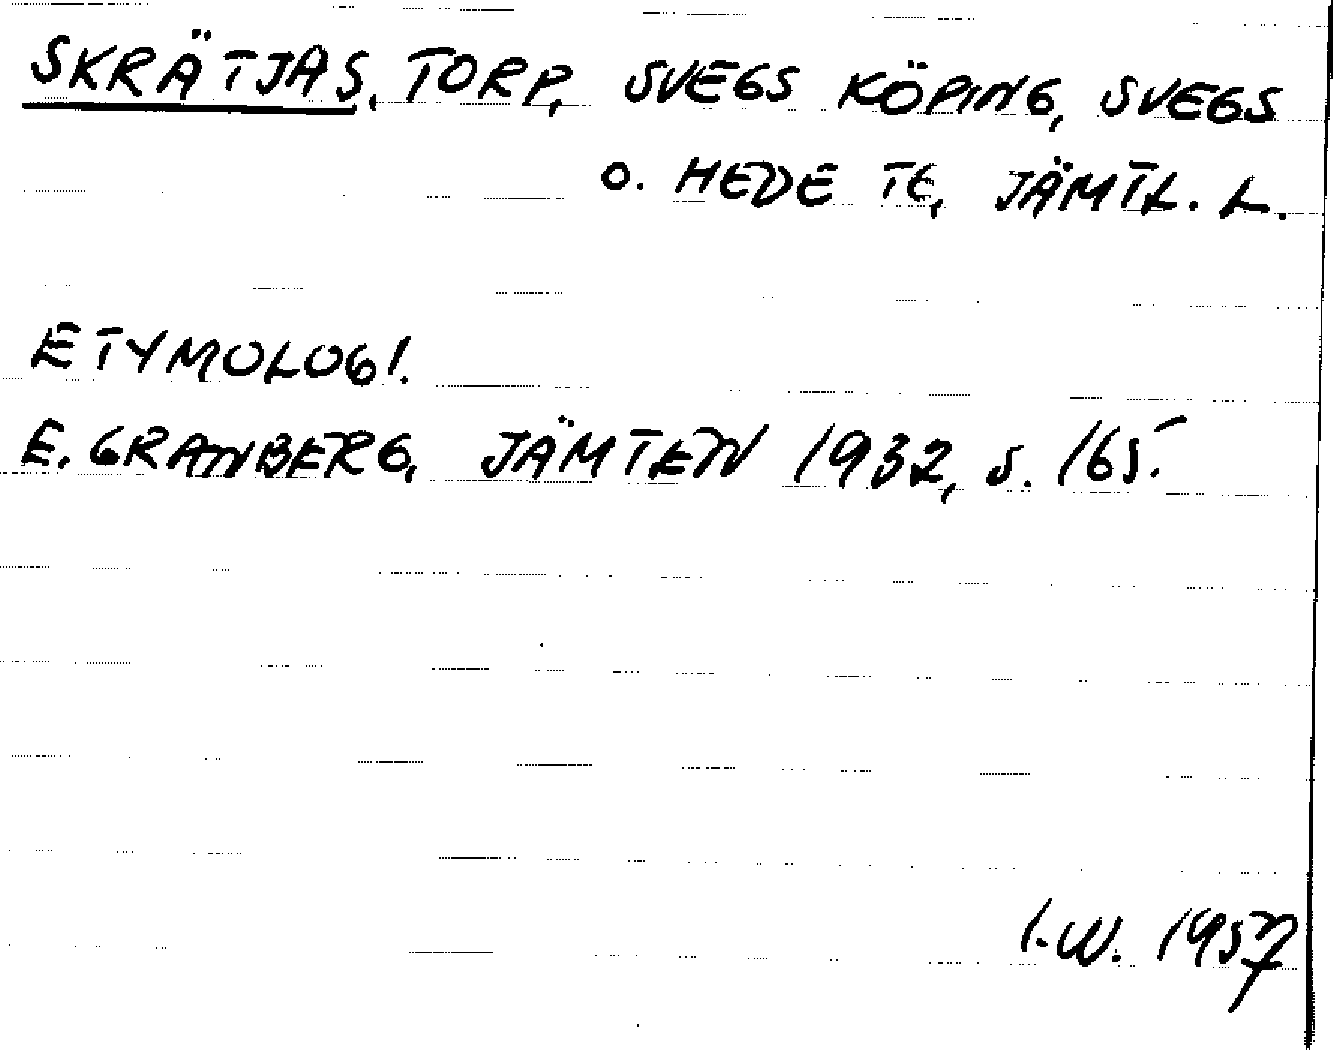 SKRÄTJAS, TORP, SVEGS KÖPING, SVEGS
O. HEDE TG, JÄMTL. L.
ETYMOLOGI.
E. GRANBERG, JÄMTEN 1932, s. 165.
I.W. 1957